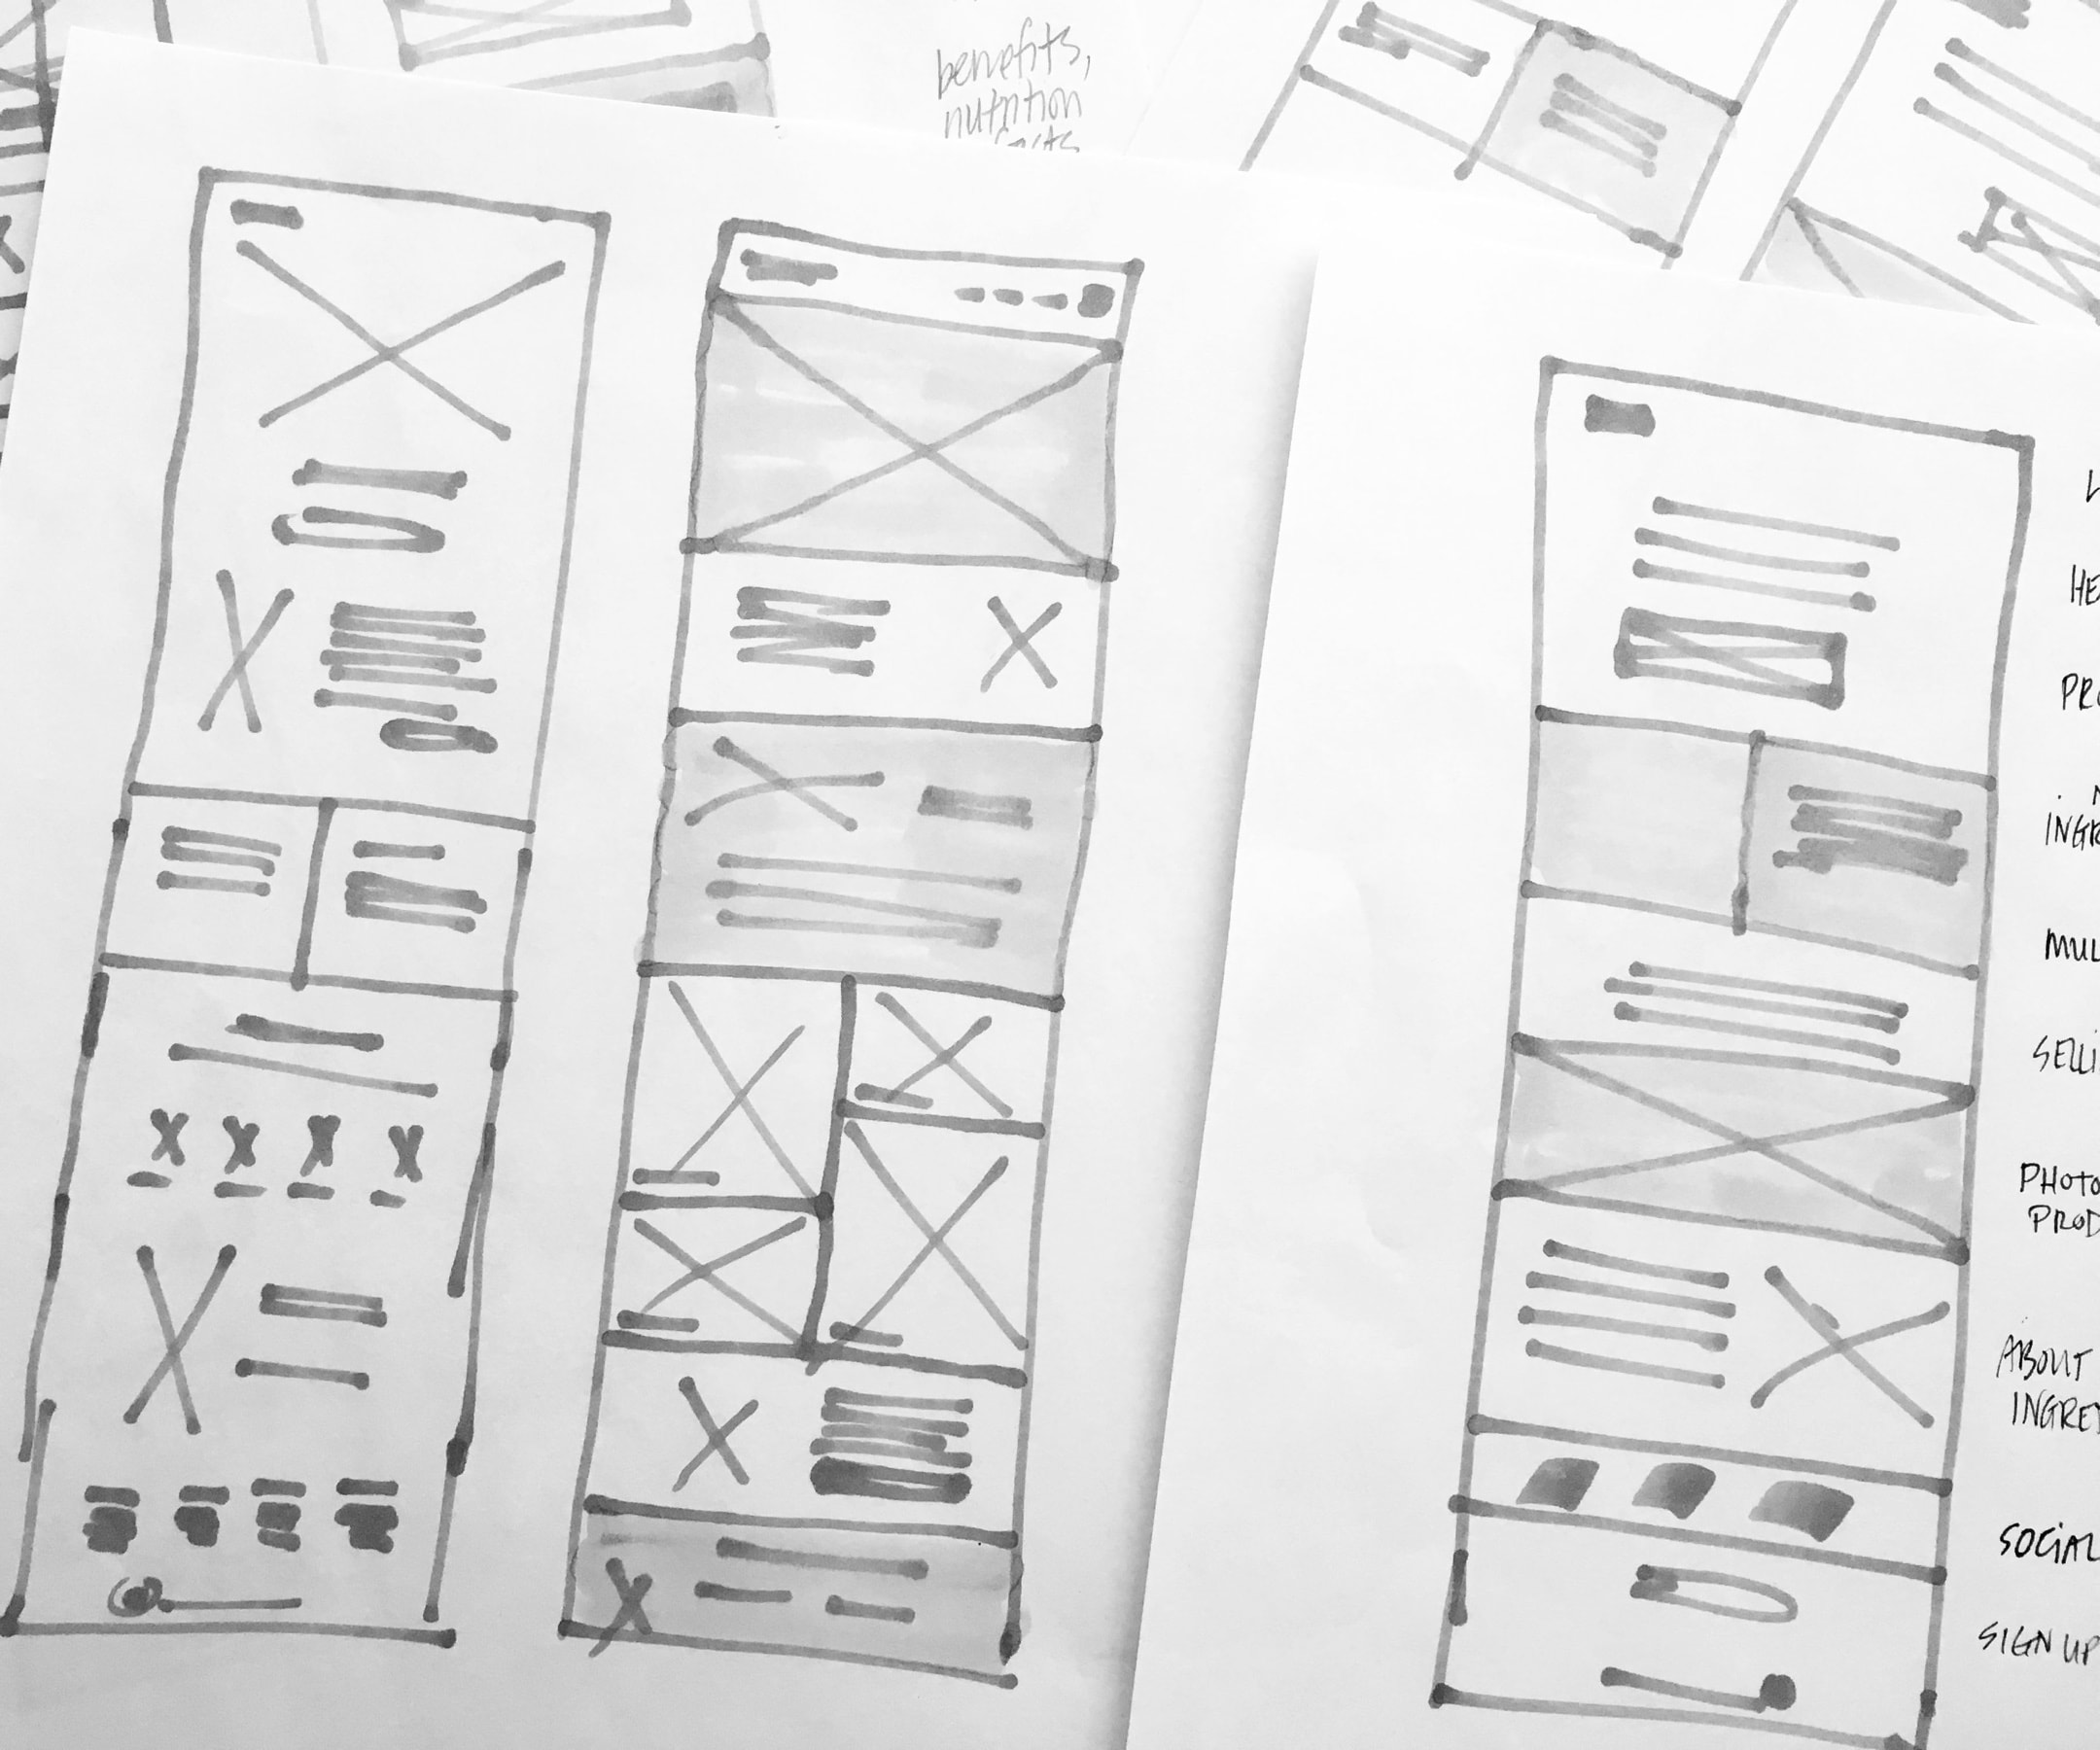 benefits,
nutrition
facts
L
HE
PRO
INGR
MUL
SELLI
PHOTO
PROD
ABOUT
INGRE
SOCIAL
SIGN UP